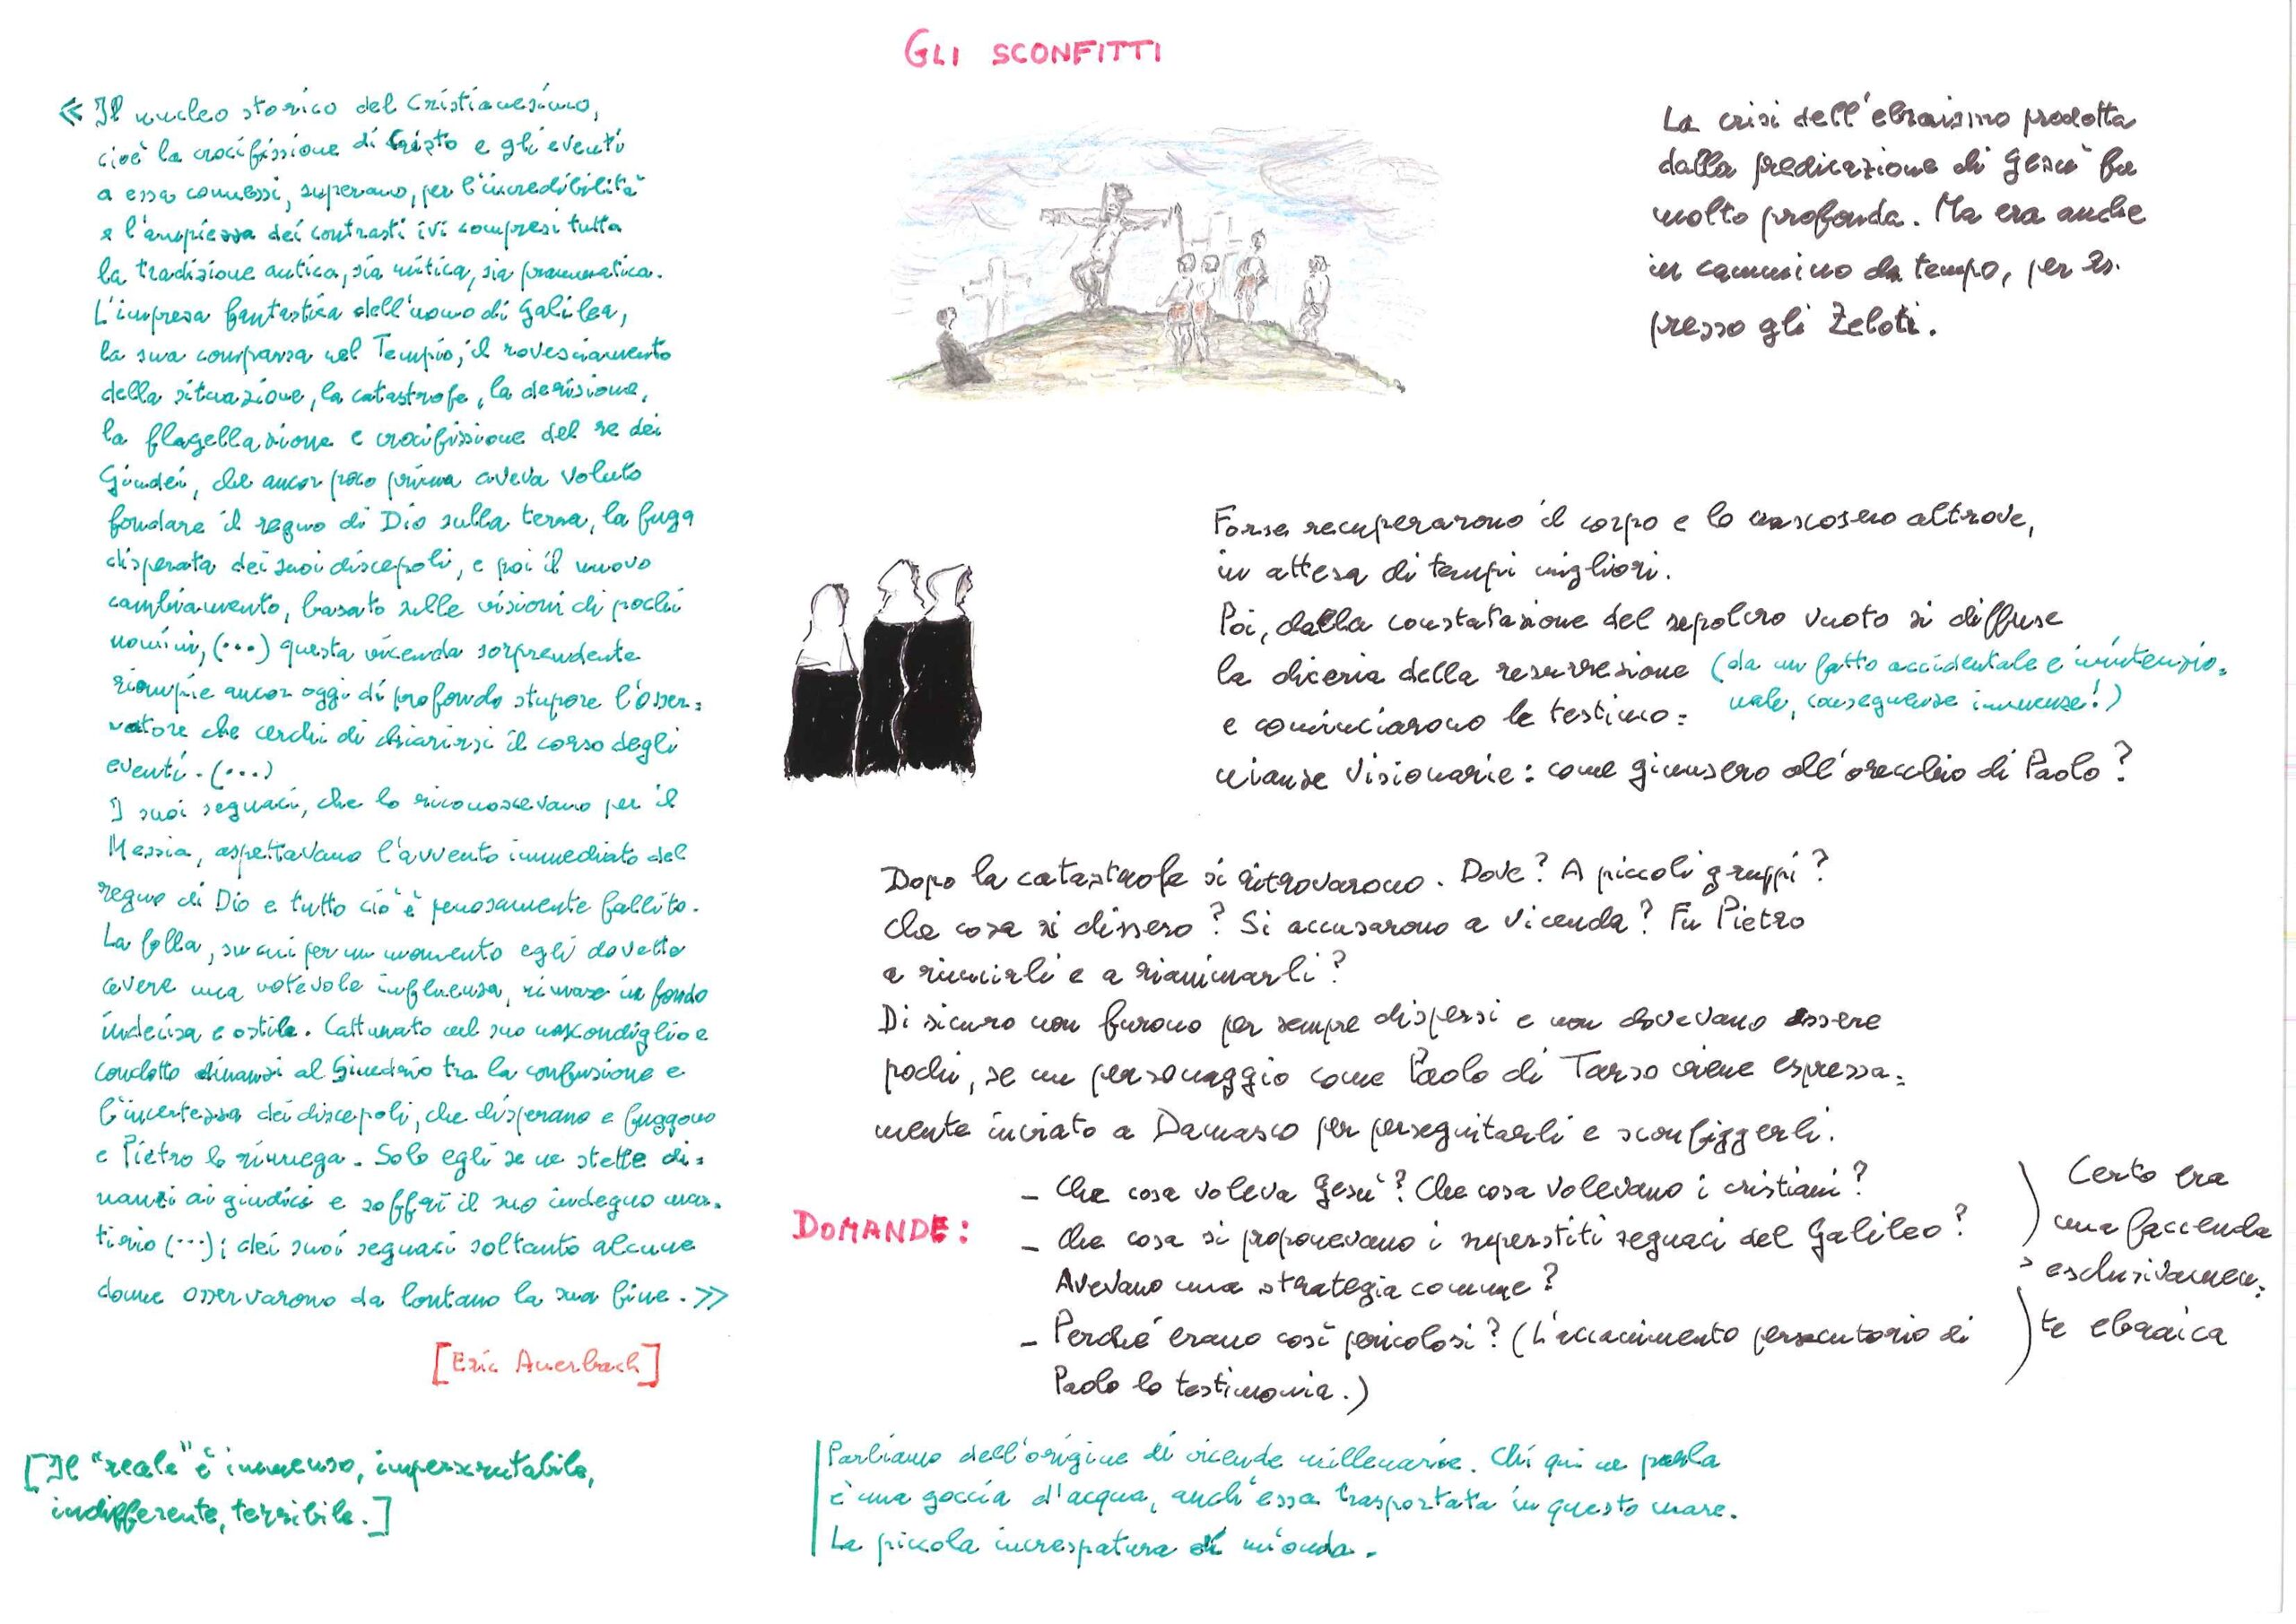 GLI SCONFITTI
« Il nucleo storico del Cristianesimo,
cioè la crocifissione di Cristo e gli eventi
a essa connessi, superano, per l'incredibilità
e l'ampiezza dei contrasti ivi compresi tutta
la tradizione antica, sia mitica, sia prammatica.
L'impresa fantastica dell'uomo di Galilea,
la sua comparsa nel Tempio, il rovesciamento
della situazione, la catastrofe, la derisione,
la flagellazione e crocifissione del re dei
Giudei, che ancor poco prima aveva voluto
fondare il regno di Dio sulla terra, la fuga
disperata dei suoi discepoli, e poi il nuovo
cambiamento, basato sulle visioni di pochi
uomini, (...) questa vicenda sorprendente
riempie ancor oggi di profondo stupore l'osser=
vatore che cerchi di chiarirsi il corso degli
eventi. (...)
I suoi seguaci, che lo riconoscevano per il
Messia, aspettavano l'avvento immediato del
regno di Dio e tutto ciò è penosamente fallito.
La folla, su cui per un momento egli dovette
avere una notevole influenza, rimase in fondo
indecisa e ostile. Catturato nel suo nascondiglio e
condotto dinanzi al Giudizio tra la confusione e
l'incertezza dei discepoli, che disperano e fuggono
e Pietro lo rinnega. Solo egli se ne stette di=
nanzi ai giudici e soffrì il suo indegno mar=
tirio (...); dei suoi seguaci soltanto alcune
donne osservarono da lontano la sua fine. »
[Eric Auerbach]
[Il "reale" è immenso, imperscrutabile,
indifferente, terribile.]
La crisi dell'ebraismo prodotta
dalla predicazione di Gesù fu
molto profonda. Ma era anche
in cammino da tempo, per es.
presso gli Zeloti.
Forse recuperarono il corpo e lo nascosero altrove,
in attesa di tempi migliori.
Poi, dalla constatazione del sepolcro vuoto si diffuse
la diceria della resurrezione (da un fatto accidentale e inintenzio=
nale, conseguenze immense!)
e cominciarono le testimo=
nianze visionarie: come giunsero all'orecchio di Paolo?
Dopo la catastrofe si ritrovarono. Dove? A piccoli gruppi?
Che cosa si dissero? Si accusarono a vicenda? Fu Pietro
a riunirli e a rianimarli?
Di sicuro non furono per sempre dispersi e non dovevano essere
pochi, se un personaggio come Paolo di Tarso viene espressa=
mente inviato a Damasco per perseguitarli e sconfiggerli.
DOMANDE:
- Che cosa voleva Gesù? Che cosa volevano i cristiani?
- Che cosa si proponevano i superstiti seguaci del Galileo?
Avevano una strategia comune?
- Perché erano così pericolosi? (L'accanimento persecutorio di
Paolo lo testimonia.)
Certo era
una faccenda
esclusivamen=
te ebraica
Parliamo dell'origine di vicende millenarie. Chi qui ne parla
è una goccia d'acqua, anch'essa trasportata in questo mare.
La piccola increspatura di un'onda.